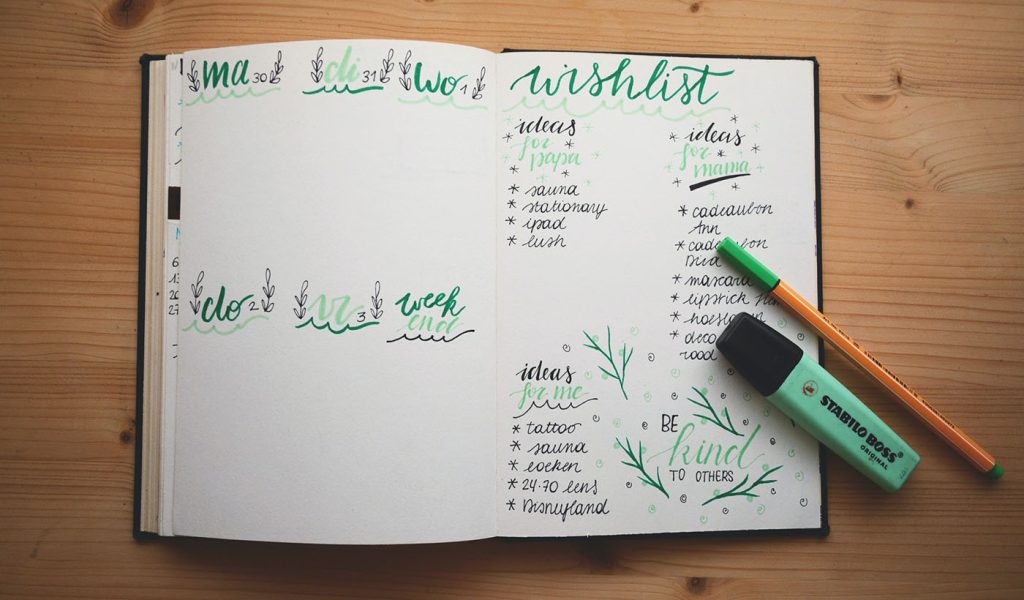 ma 30 di 31 wo 1
do 2 vr 3 week
end
wishlist
ideas
for
papa
* sauna
* stationary
* ipad
* lush
ideas
for
mama
* cadeaubon
Ann
*
* mascara
* lipstick
*
* deco
rood
ideas
for me
* tattoo
* sauna
* boeken
* 24-70 lens
* Disneyland
BE
kind
TO OTHERS
STABILO BOSS
ORIGINAL